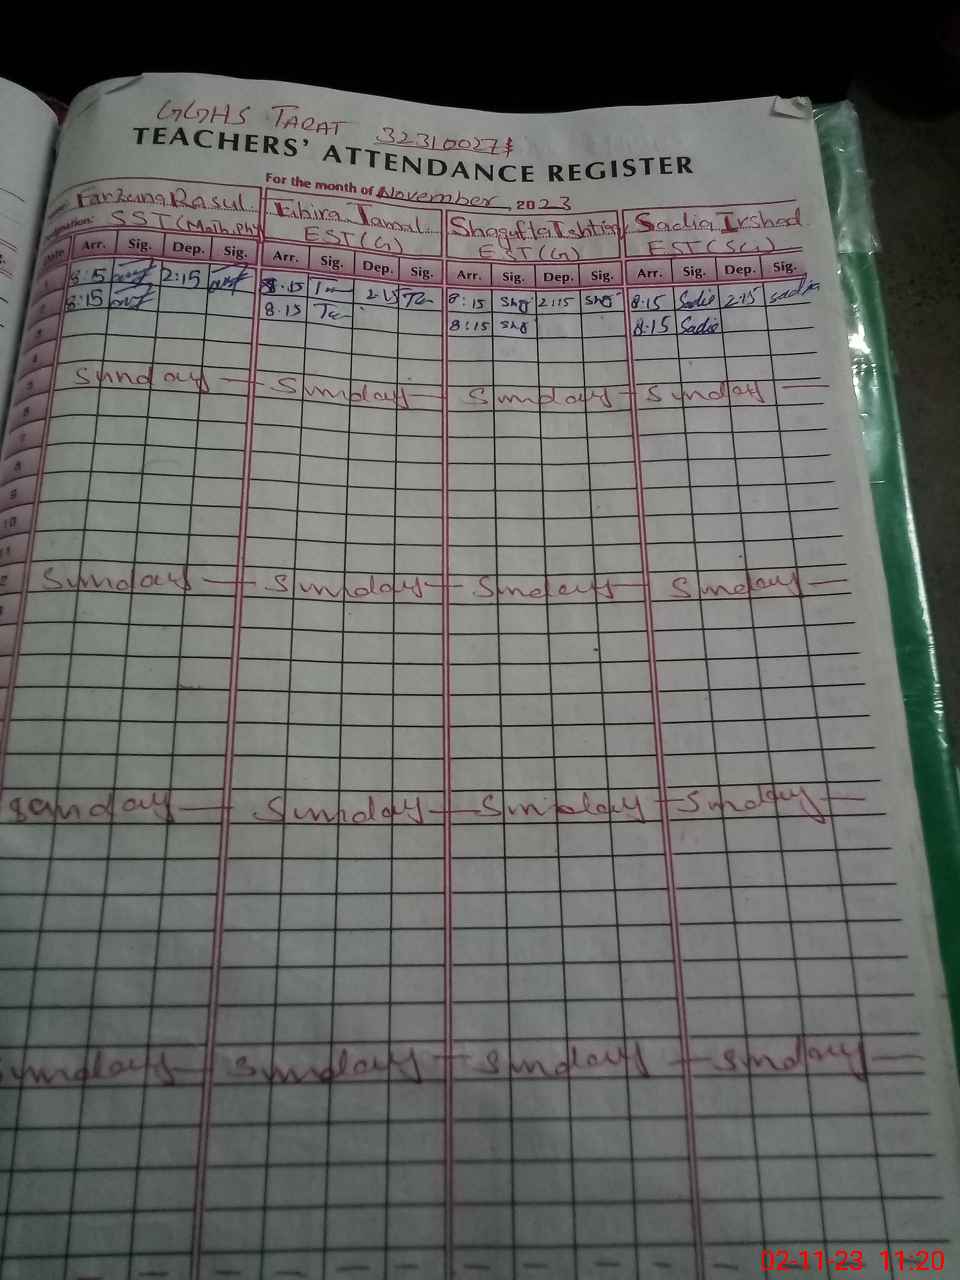 GGHS TARAT 32310027
TEACHERS' ATTENDANCE REGISTER
For the month of November 2023
Farzana Rasul Tahira Jamal Shagufta Ishtiaq Sadia Irshad
Designation: SST (Math, Phy) EST (G) EST (G) EST (SG)
Date Arr. Sig. Dep. Sig. Arr. Sig. Dep. Sig. Arr. Sig. Dep. Sig. Arr. Sig. Dep. Sig.
1 8:15 2:15 8:15 2:15 8:15 Shg 2:15 Shg 8:15 Sadia 2:15 Sadia
2 8:15 8:15 8:15 Shg 8:15 Sadia
3
4
5 Sunday Sunday Sunday Sunday
6
7
8
9
10
11
Sunday Sunday Sunday Sunday
Sunday Sunday Sunday Sunday
Sunday Sunday Sunday Sunday
02-11-23 11:20